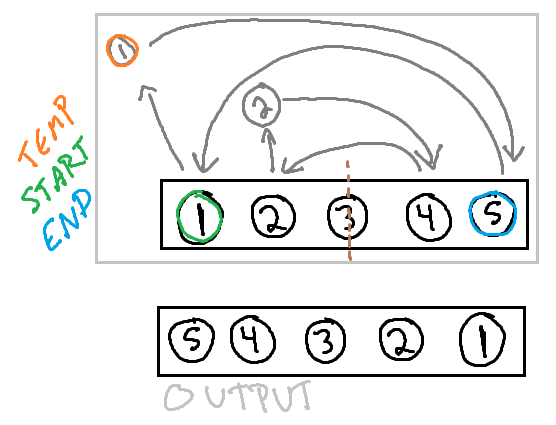 1
2
TEMP
START
END
1 2 3 4 5
5 4 3 2 1
OUTPUT